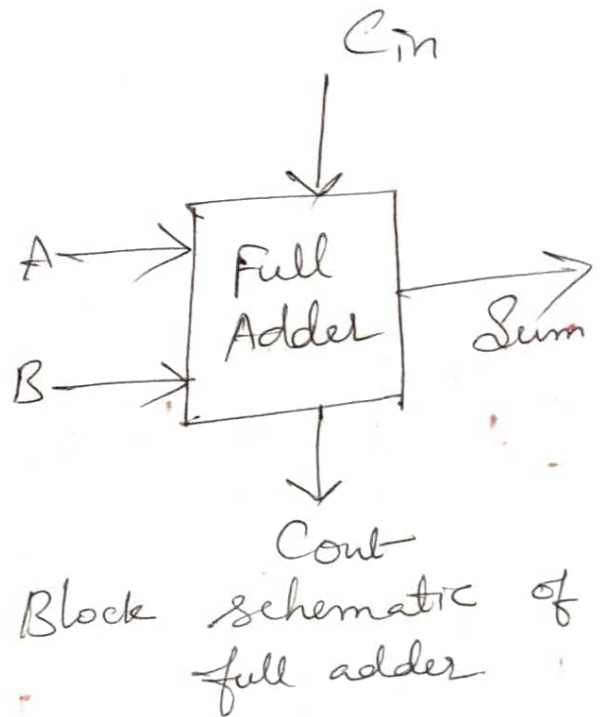 Cin
A
Full
Adder
Sum
B
Cout
Block schematic of
full adder